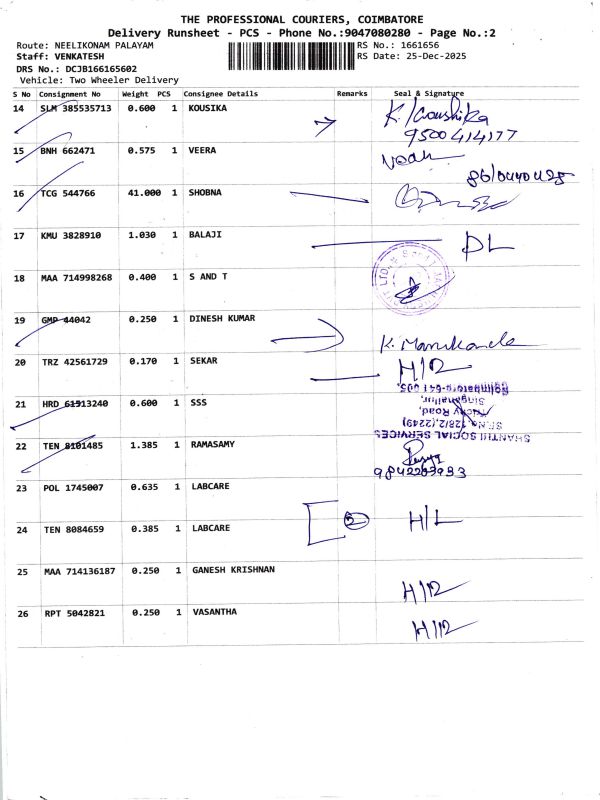 THE PROFESSIONAL COURIERS, COIMBATORE
Delivery Runsheet - PCS - Phone No.:9047080280 - Page No.:2
Route: NEELIKONAM PALAYAM
RS No.: 1661656
Staff: VENKATESH
RS Date: 25-Dec-2025
DRS No.: DCJB166165602
Vehicle: Two Wheeler Delivery
S No Consignment No Weight PCS Consignee Details Remarks Seal & Signature
14 SLM 385535713 0.600 1 KOUSIKA K. Koushika
9500414177
15 BNH 662471 0.575 1 VEERA
16 TCG 544766 41.000 1 SHOBNA
17 KMU 3828910 1.030 1 BALAJI DL
18 MAA 714998268 0.400 1 S AND T
19 GMP 44042 0.250 1 DINESH KUMAR K. Manikanda
20 TRZ 42561729 0.170 1 SEKAR H/R
21 HRD 61513240 0.600 1 SSS
SHANTHI SOCIAL SERVICES
SF.No. 128/2,(2249)
Trichy Road,
Singanallur,
Coimbatore-641 005.
22 TEN 8101485 1.385 1 RAMASAMY
9842203933
23 POL 1745007 0.635 1 LABCARE
24 TEN 8084659 0.385 1 LABCARE 2 H/L
25 MAA 714136187 0.250 1 GANESH KRISHNAN H/R
26 RPT 5042821 0.250 1 VASANTHA H/R